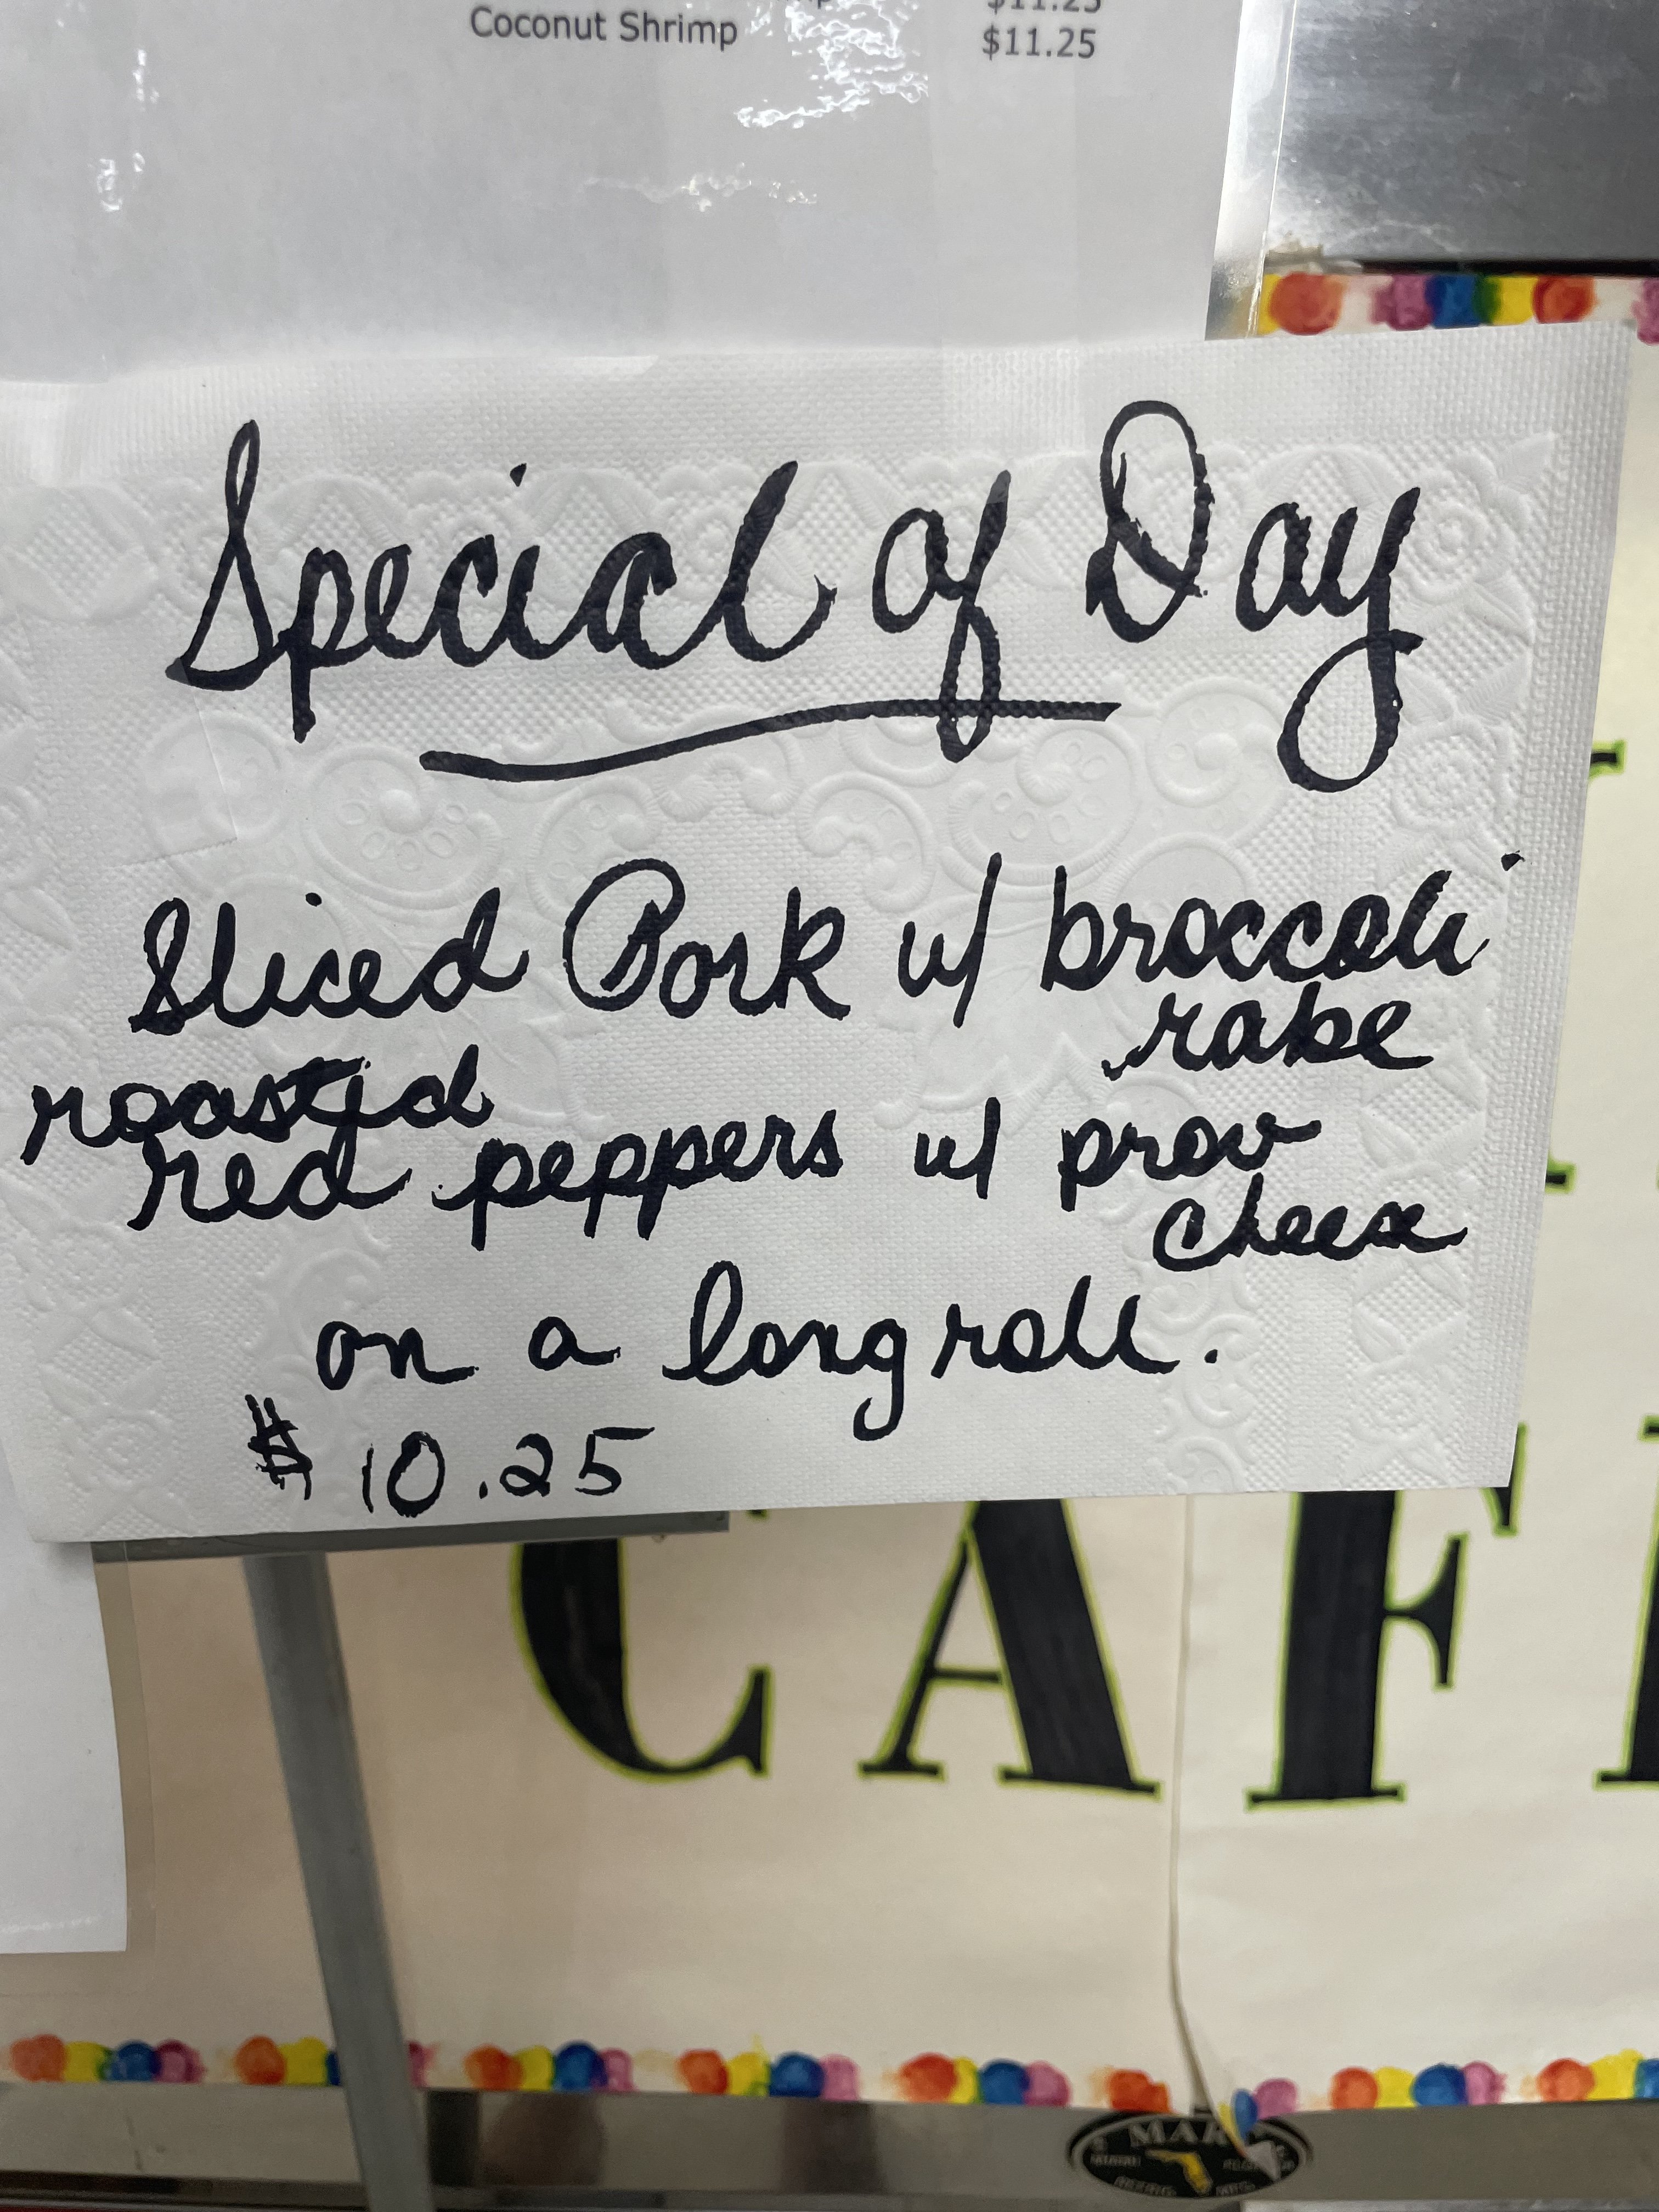 $11.25
Coconut Shrimp $11.25
Special of Day
Sliced Pork w/ broccoli
rabe
roasted
red peppers w/ prov
cheese
on a long roll.
$10.25
CAF